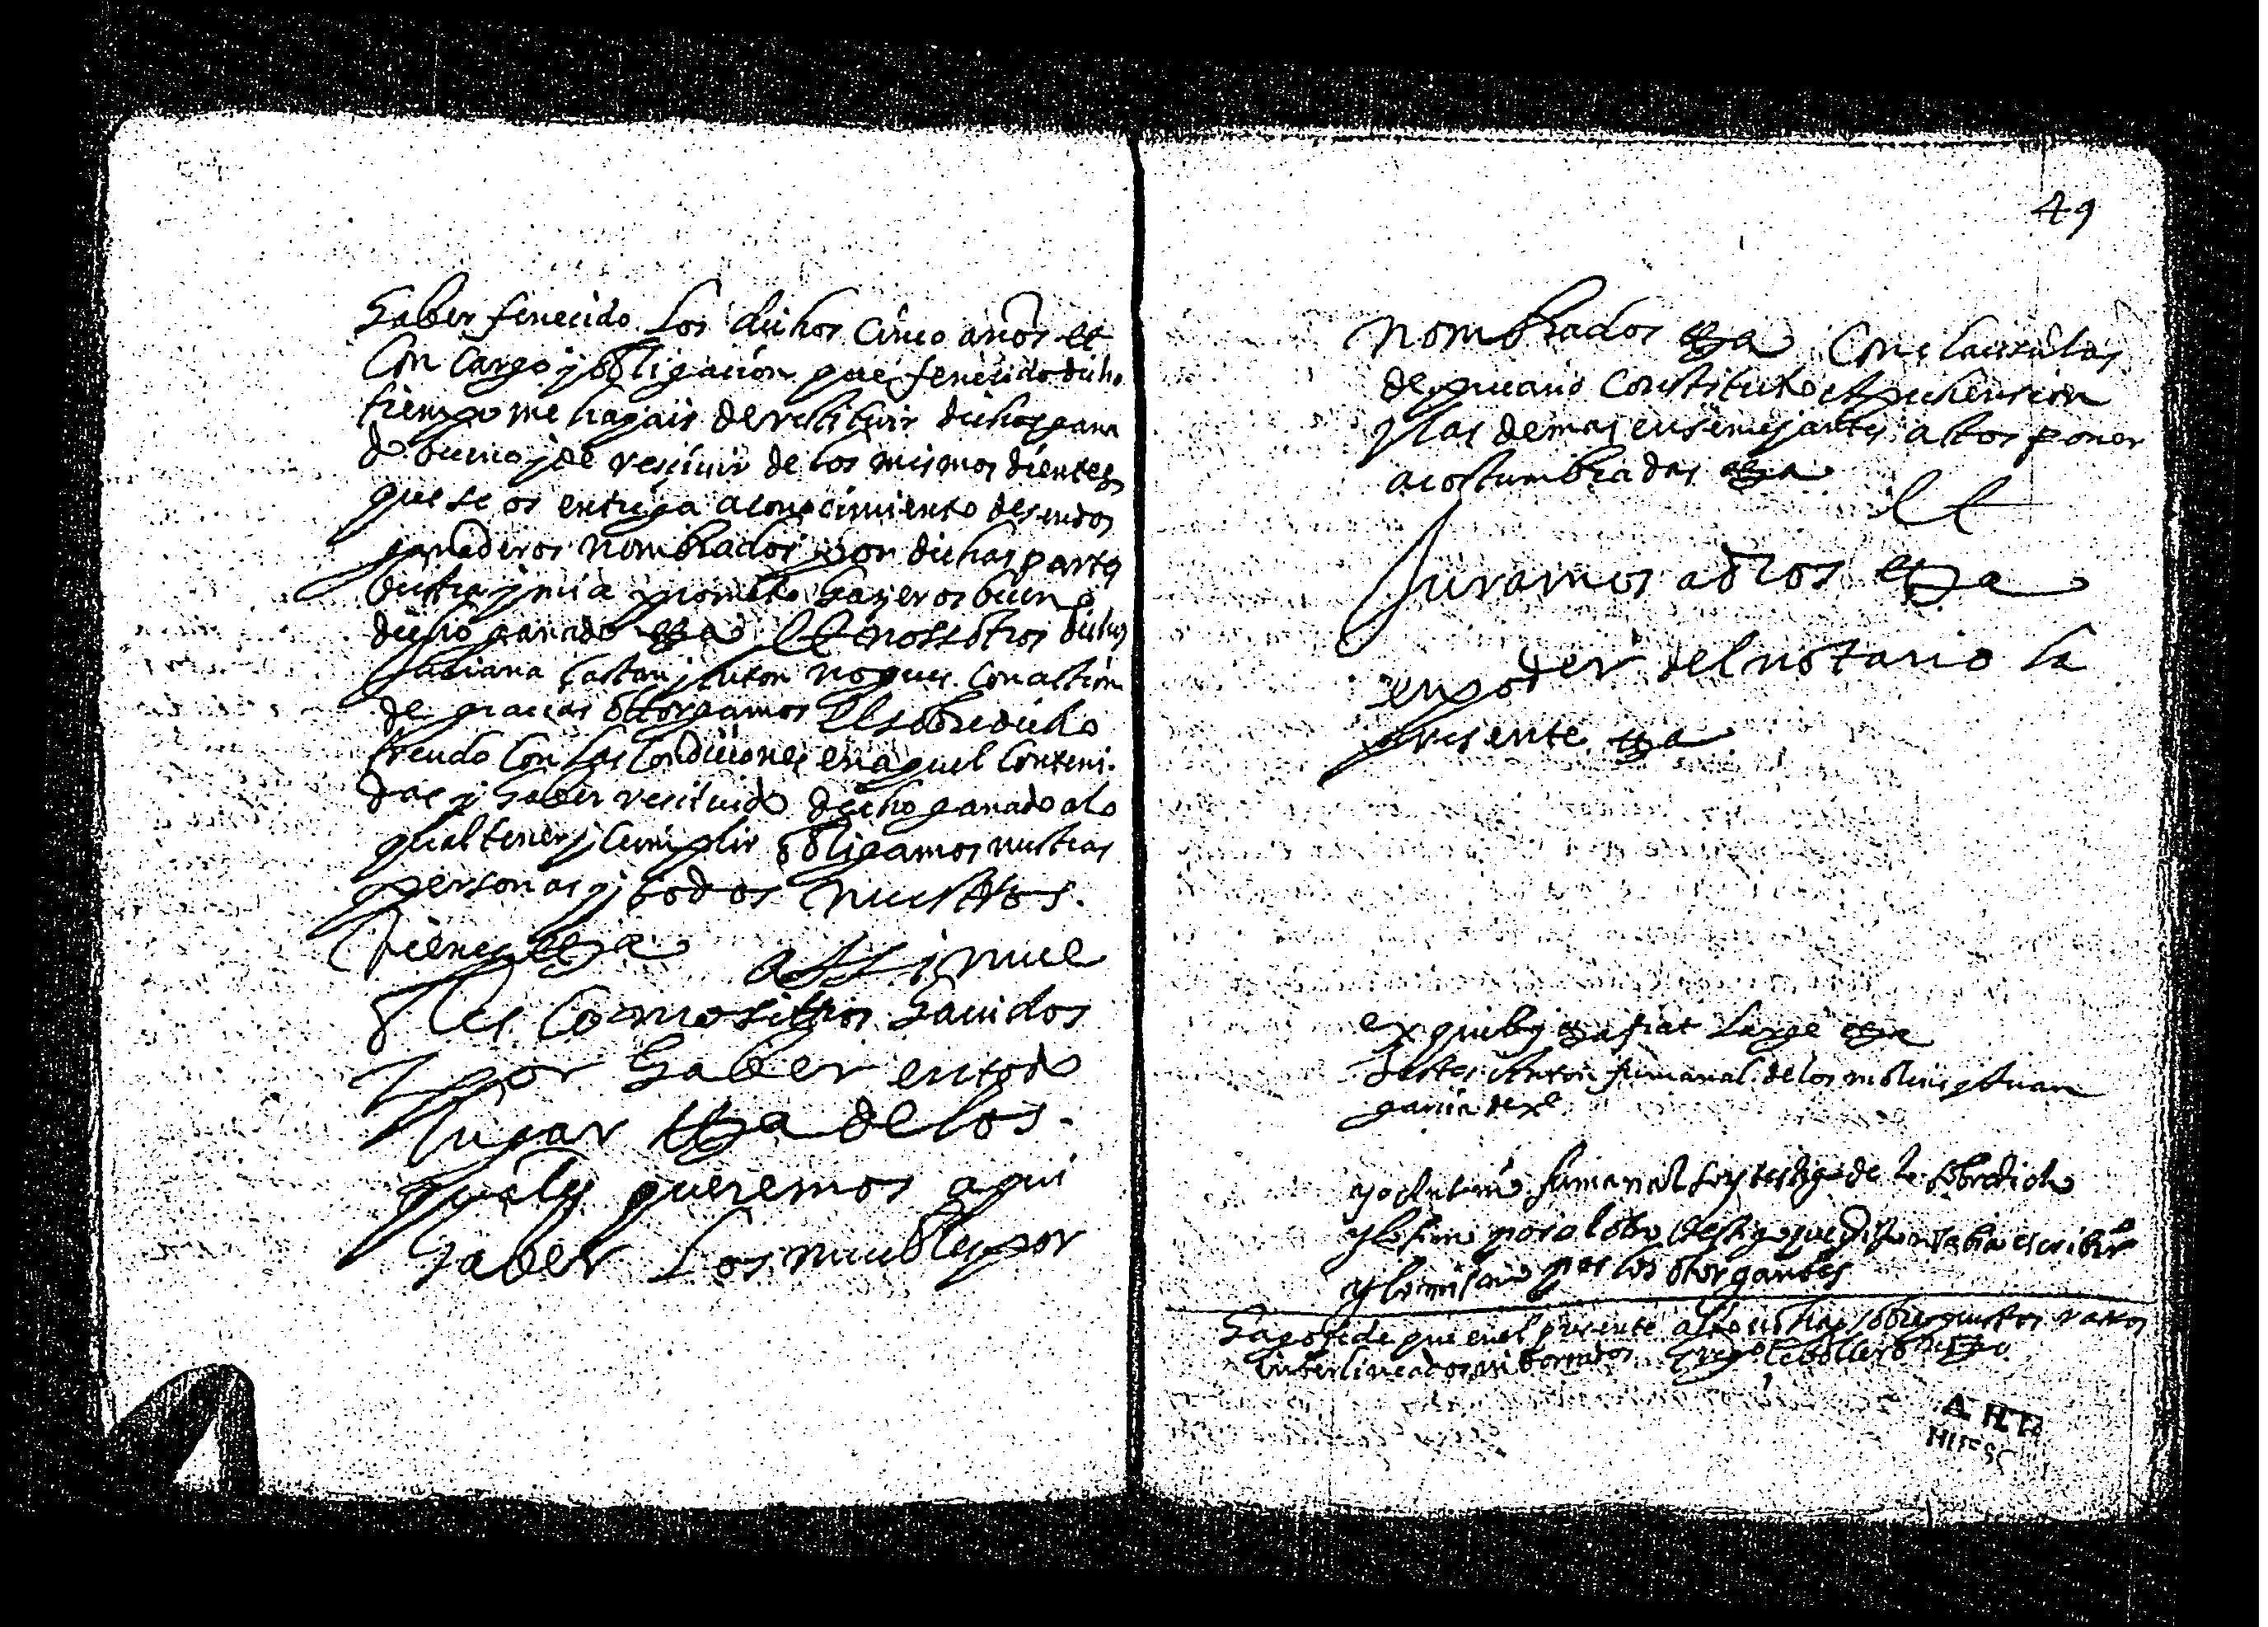 haber fenecido los dichos cinco años et
con cargo y obligacion que fenecido dicho
tiempo me hagais de restituir dicho gana
do bueno y de rescivir de los mismos dientes
que se os entrega a conocimiento de sendos
ganaderos nombrados por dichas partes
vustra y mia prometo hazeros bueno
dicho ganado etza et nossotros dichos
Castan y Anton nogues con action
de gracias otorgamos el sobredicho
treudo con las condiciones en aquel conteni
das y haber rescivido dicho ganado a lo
qual tener y cumplir obligamos nustras
personas y todos nuestros
bienes etza assi mue
bles como sitios havidos
y por haber en todo
lugar etza de los
quales queremos aqui
haber los muebles por
49
nombrados etza con clausulas
de precario constituto aprehension
y las demas en semejantes actos poner
acostumbradas etza et
Juramos a dios etza
en poder del notario la
presente etza
ex quibus etza fiat large etza
testes Anton fumanal de los molinos y Juan
garcia de
yo Anton fumanal soy testigo de lo sobredicho
y lo firmo por el otro testigo que dixo no sabia escribir
y lo mismo por los otorgantes
Hago fe de que en el presente acto no hay sobrepuestos rasos
interlineados ni borrados Cebollero
A. H. P.
HUESC